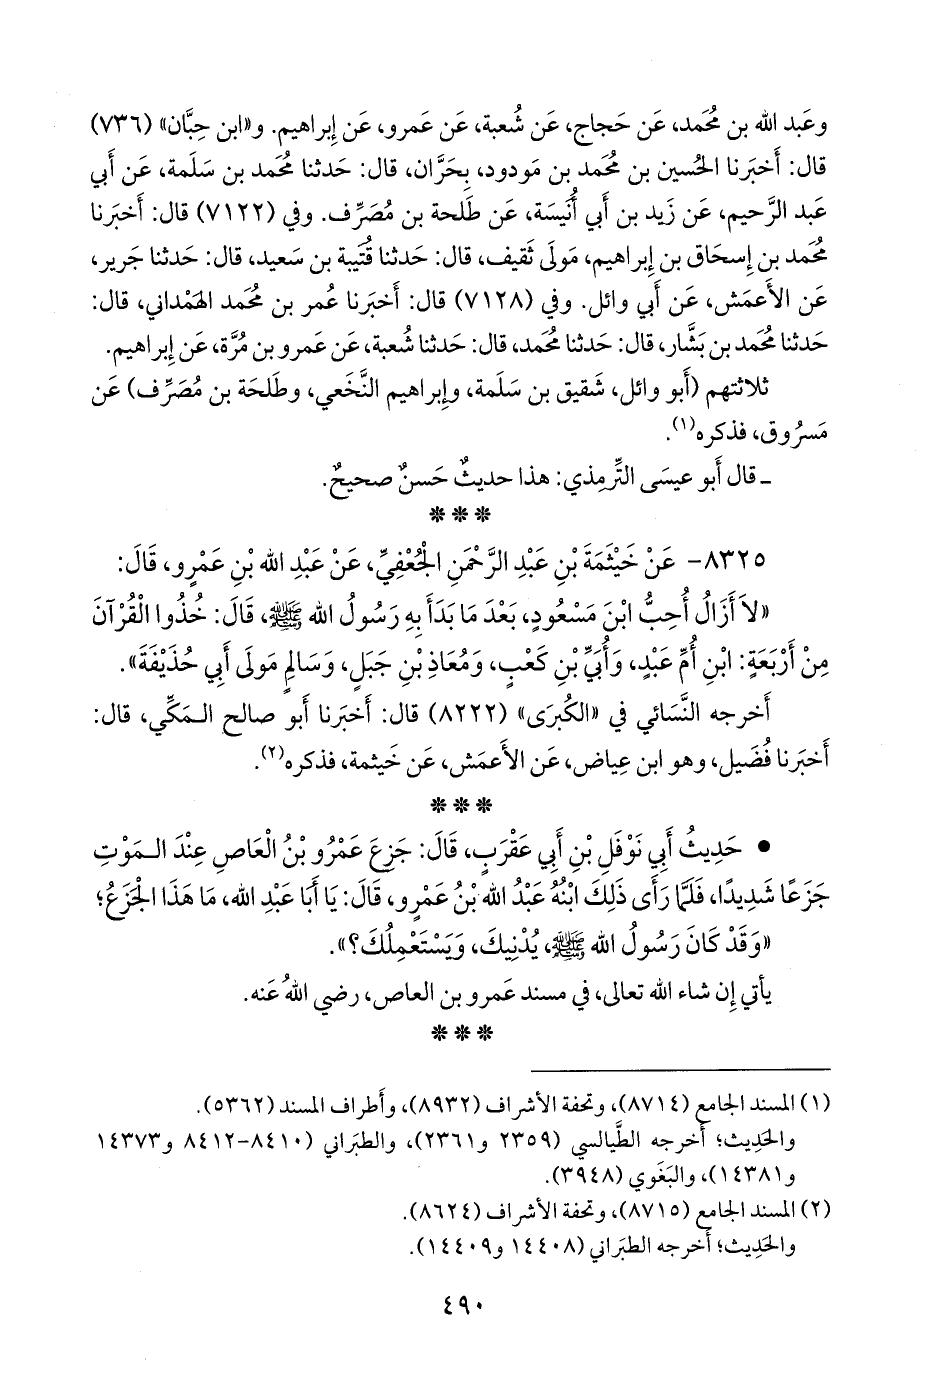 وعَبد الله بن مُحمد، عَن حَجاج، عَن شُعبة، عَن عَمرو، عَن إِبراهيم. و«ابن حِبَّان» (٧٣٦)
قال: أَخبَرنا الحُسين بن مُحمد بن مَودود، بِحَرَّان، قال: حَدثنا مُحمد بن سَلَمة، عَن أَبي
عَبد الرَّحيم، عَن زَيد بن أَبي أُنَيسَة، عَن طَلحة بن مُصَرِّف. وفي (٧١٢٢) قال: أَخبَرنا
مُحمد بن إِسحَاق بن إِبراهيم، مَولى ثَقيف، قال: حَدثنا قُتيبة بن سَعيد، قال: حَدثنا جَرير،
عَن الأَعمَش، عَن أَبي وائل. وفي (٧١٢٨) قال: أَخبَرنا عُمر بن مُحمد الهَمْداني، قال:
حَدثنا مُحمد بن بَشَّار، قال: حَدثنا مُحمد، قال: حَدثنا شُعبة، عَن عَمرو بن مُرَّة، عَن إِبراهيم.
ثلاثتهم (أَبو وائل، شَقيق بن سَلَمة، وإِبراهيم النَّخَعي، وطَلحَة بن مُصَرِّف) عَن
مَسرُوق، فذكره(١).
ـ قال أَبو عيسَى التِّرمِذي: هذا حديثٌ حَسنٌ صحيحٌ.
* * *
٨٣٢٥- عَنْ خَيْثَمَةَ بْنِ عَبْدِ الرَّحْمَنِ الْجُعْفِيِّ، عَنْ عَبْدِ الله بْنِ عَمْرٍو، قَالَ:
«لاَ أَزَالُ أُحِبُّ ابْنَ مَسْعُودٍ، بَعْدَ مَا بَدَأَ بِهِ رَسُولُ الله ﷺ، قَالَ: خُذُوا الْقُرْآنَ
مِنْ أَرْبَعَةٍ: ابْنِ أُمِّ عَبْدٍ، وَأُبَيِّ بْنِ كَعْبٍ، وَمُعَاذِ بْنِ جَبَلٍ، وَسَالِمٍ مَولَى أَبِي حُذَيْفَةَ».
أَخرجه النَّسَائي في «الكُبرَى» (٨٢٢٢) قال: أَخبَرنا أَبو صالح المَكِّي، قال:
أَخبَرنا فُضَيل، وهو ابن عِياض، عَن الأَعمَش، عَن خَيثمة، فذكره(٢).
* * *
• حَدِيثُ أَبِي نَوْفَلِ بْنِ أَبِي عَقْرَبٍ، قَالَ: جَزِعَ عَمْرُو بْنُ الْعَاصِ عِنْدَ المَوْتِ
جَزَعًا شَدِيدًا، فَلَمَّا رَأَى ذَلِكَ ابْنُهُ عَبْدُ الله بْنُ عَمْرٍو، قَالَ: يَا أَبَا عَبْدِ الله، مَا هَذَا الْجَزَعُ؛
«وَقَدْ كَانَ رَسُولُ الله ﷺ، يُدْنِيكَ، وَيَسْتَعْمِلُكَ؟».
يأتي إِن شاء الله تعالى، في مسند عَمرو بن العاص، رضي اللهُ عَنه.
* * *
(١) المسند الجامع (٨٧١٤)، وتحفة الأشراف (٨٩٣٢)، وأَطراف المسند (٥٣٦٢).
والحَدِيث؛ أَخرجه الطَّيالسي (٢٣٥٩ و٢٣٦١)، والطبَراني (٨٤١٠-٨٤١٢ و١٤٣٧٣
و١٤٣٨١)، والبَغَوي (٣٩٤٨).
(٢) المسند الجامع (٨٧١٥)، وتحفة الأشراف (٨٦٢٤).
والحَدِيث؛ أَخرجه الطبَراني (١٤٤٠٨ و١٤٤٠٩).
٤٩٠